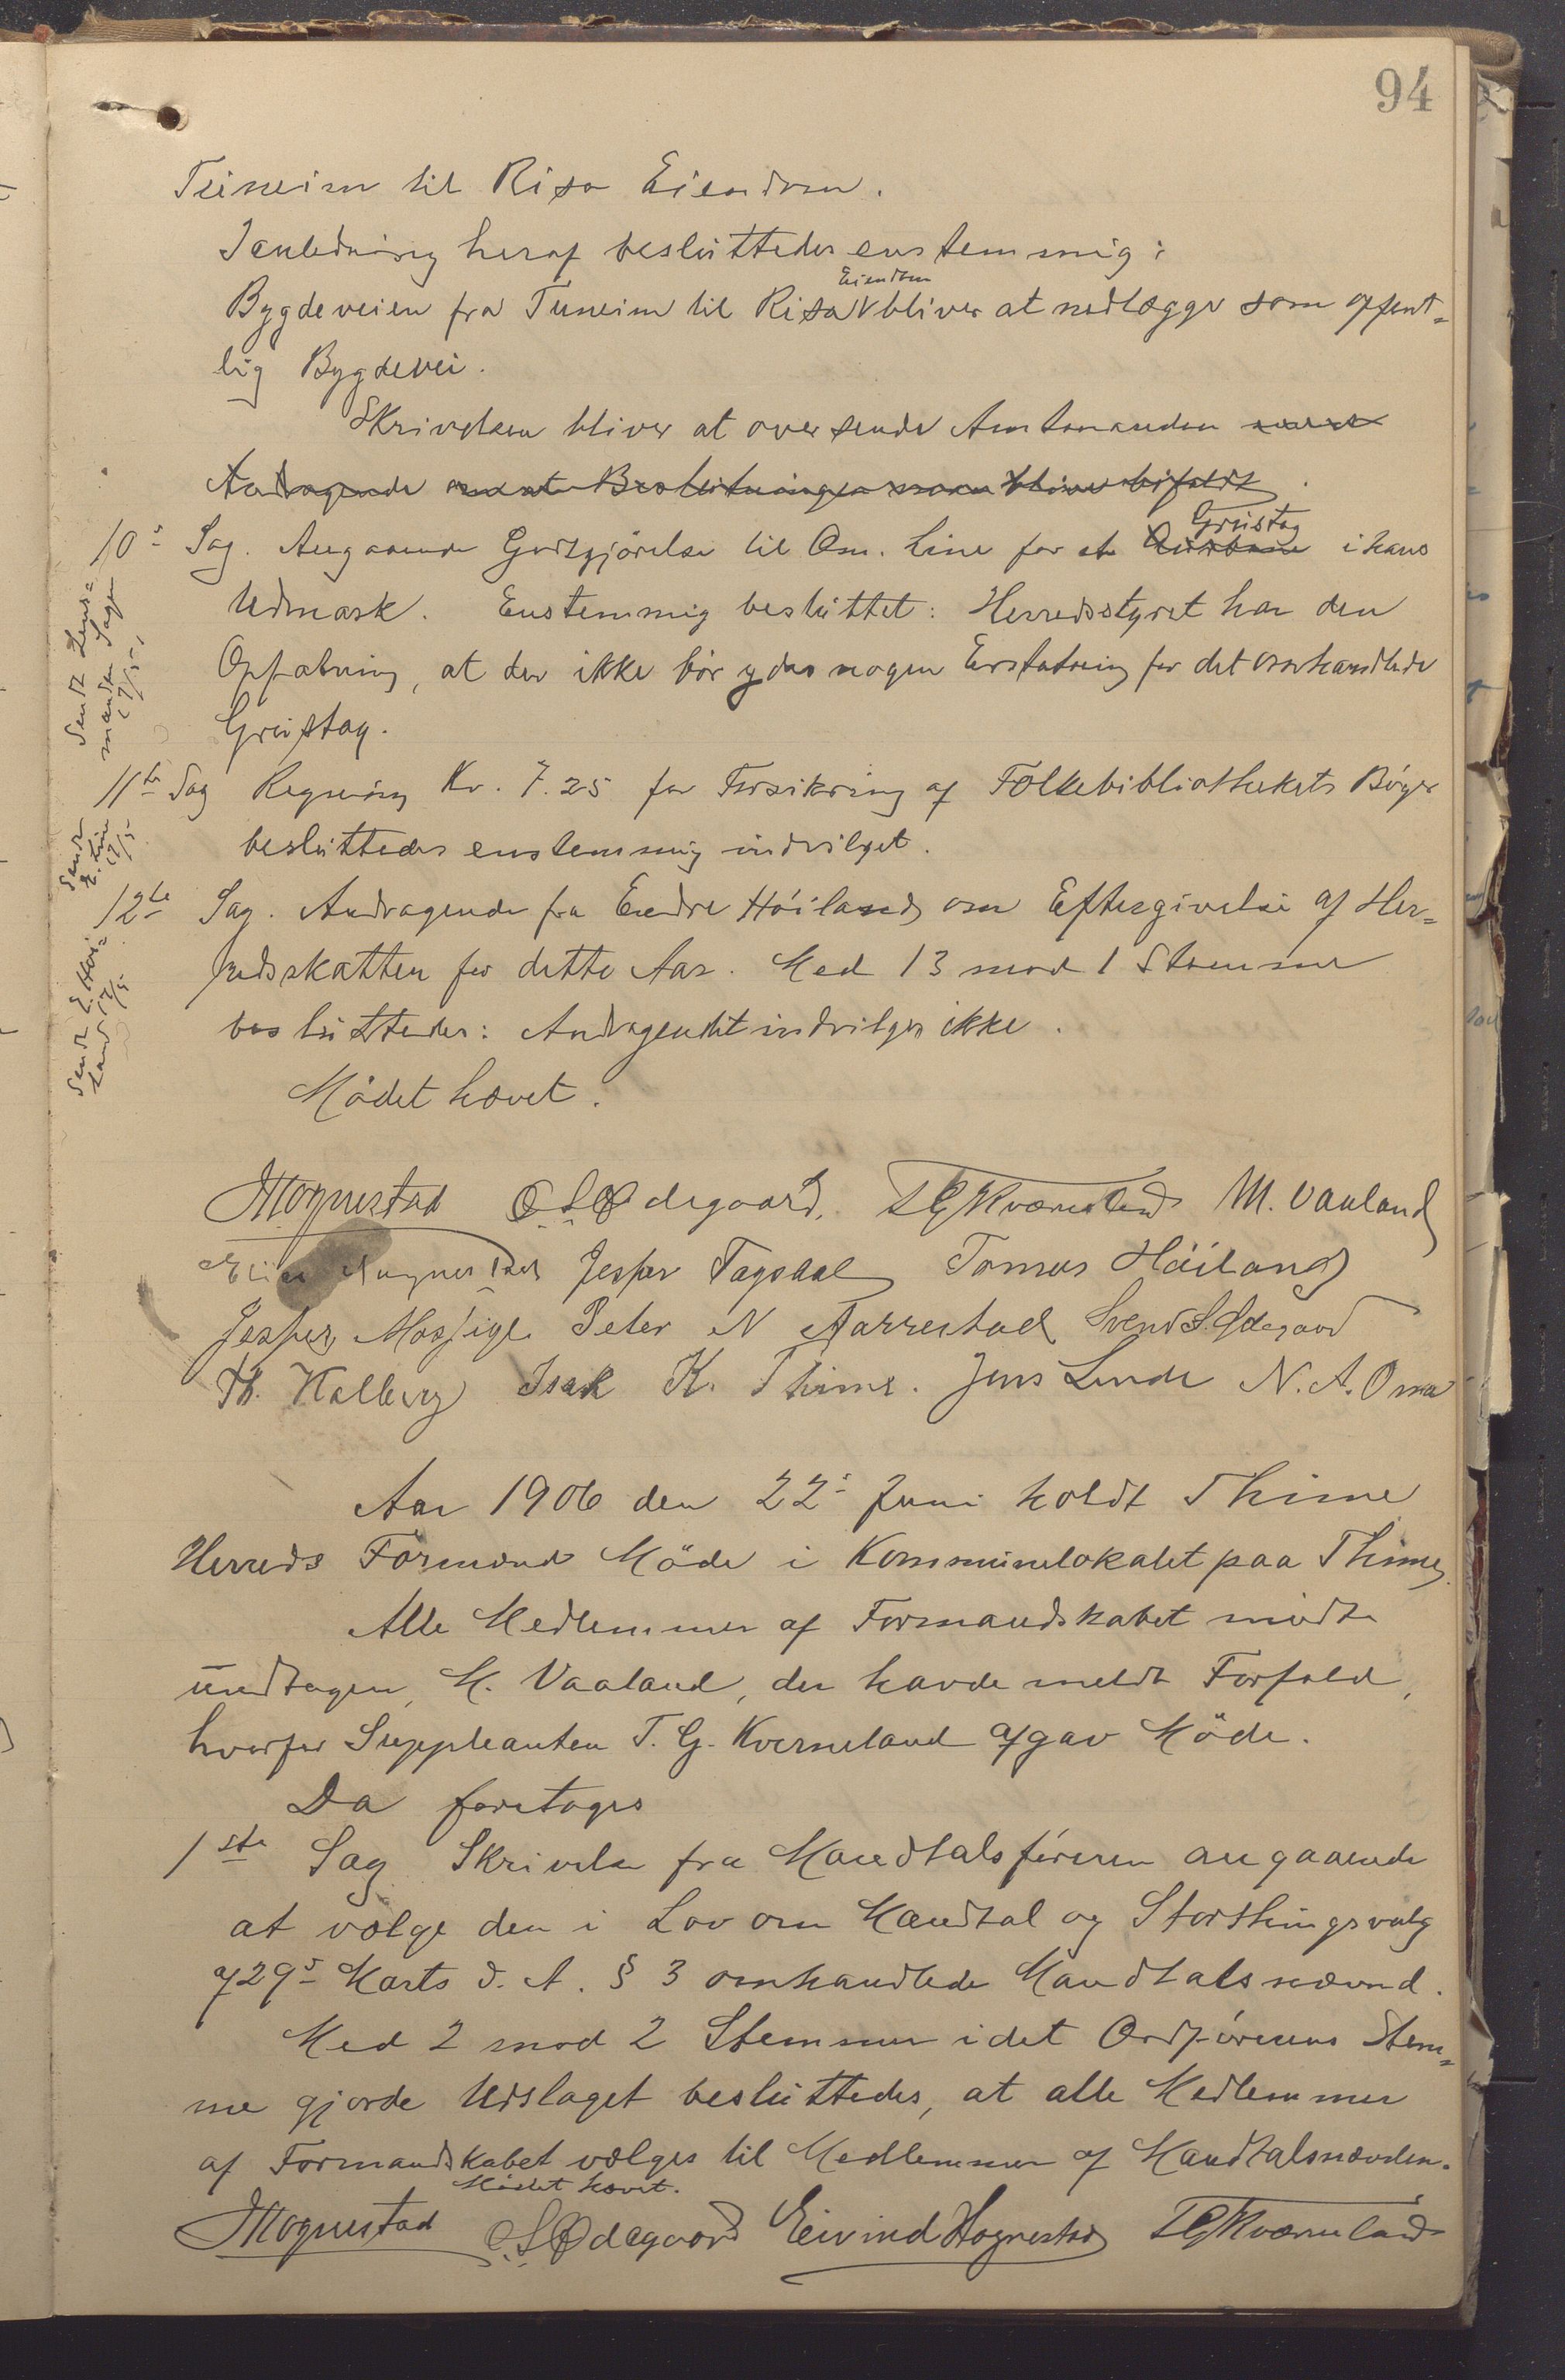 94
Tuneim til Risa Eiendom.
I anledning heraf besluttedes enstemmig:
Eiendom
Bygdeveien fra Tuneim til Risa bliver at nedlægge som offent=
lig Bygdevei.
Skrivelsen bliver at oversende Amtmanden
Andragende om at Beslutningen maa blive bifaldt.
Grustag
10s Sag. Angaaende Godtgjörelse til Om. Line for et i hans
Udmark. Enstemmig besluttet: Herredsstyret har den
Opfatning, at der ikke bör ydes nogen Erstatning for det omhandlede
Grustag.
Sendt Lens=
mandn Sagen
17/5
11te Sag Regning Kr. 7.25 for Forsikring af Folkebibliothekets Böger
besluttedes enstemmig indvilget.
Sendt
E. Line
17/5
12te Sag. Andragende fra Endre Höiland om Eftergivelse af Her=
redsskatten for dette Aar. Med 13 mod 1 Stemme
besluttedes: Andragendet indvilges ikke.
Sendt E. Höi=
land 17/5
Mödet hævet.
Mognestad O. S. Ødegaard. T G Kværneland M. Vaaland
Jesper Fagsdal Tomas Höiland
Jesper Mossige Peter N Aarrestad Svend S. Ødegaard
Th. Kalberg Isak K. Thime. Jens Lende N. A. Oma
Aar 1906 den 22s Juni holdt Thime
Herreds Formænd Möde i Kommunelokalet paa Thime.
Alle Medlemmer af Formandskabet mödte
undtagen M. Vaaland, der havde meldt Forfald,
hvorfor Suppleanten T. G. Kverneland afgav Möde.
Da foretoges
1ste Sag Skrivelse fra Mandtalsföreren angaaende
at vælge den i Lov om Mandtal og Storthingsvalg
af 29s Marts d. A. § 3 omhandlede Mandtalsnævnd.
Med 2 mod 2 Stemmer idet Ordförerens Stem=
me gjorde Udslaget besluttedes, at alle Medlemmer
af Formandskabet vælges til Medlemmer af Mandtalsnævnden.
Mödet hævet.
Mognestad O. S. Ødegaard Eivind Hognestad T G Kværneland